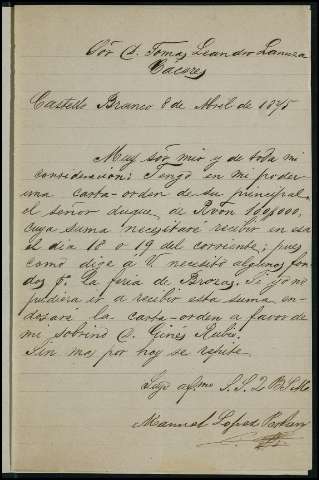 Sõr D. Tomas Leandro Lanuza
Caceres
Castello Branco 8 de Abril de 1875
Muy sõr mio y de toda mi
consideracion: Tengo en mi poder
una carta-orden de su principal
el señor duque, de Rvon 100$000,
cuya suma necesitaré recibir en esa
el dia 18 o 19 del corriente; pues
como dige a V. necesito algunos fon
dos pª la feria de Brozas. Si yo no
pudiera ir a recibir esta suma en-
dosaré la carta-orden a favor de
mi sobrino D. Ginés Rubio.
Sin mas por hoy se repite
Suyo afmo S. S. Q. B. S. M.
Manuel Lopez